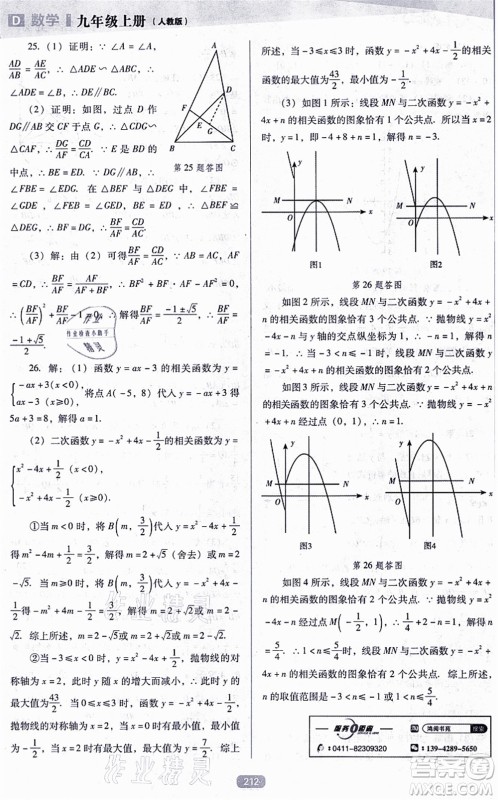 D 数学 九年级上册（人教版）
25. (1) 证明：∵ ∠A = ∠A，
AD/AB = AE/AC，∴ △ADE ∽ △ABC，∴
∠ADE = ∠ABC，∴ DE // BC.
(2) 证明：如图，过点 D 作
DG // AB 交 CF 于点 G，∴ △CDG ∽
△CAF，∴ DG/AF = CD/CA. ∵ E 是 BD 的
中点，∴ BE = ED. ∵ DG // AB，∴
∠FBE = ∠EDG. 在 △BEF 与 △DEG 中，∠FBE
= ∠GDE，∠FEB = ∠GED，BE = ED，∴ △BEF ≌
△DEG，∴ BF = DG，∴ BF/AF = CD/AC.
A
D
F
E
G
B
C
第 25 题答图
(3) 解：由 (2) 可得 BF/AF = CD/AC. ∵ AB = AC，AF
= CD，∴ BF/AF = AF/(AF + BF)，∴ BF² + BF · AF - AF² = 0，
∴ (BF/AF)² + BF/AF - 1 = 0，解得 BF/AF = (-1 ± √5)/2，∴ BF/AF =
(-1 + √5)/2.
26. 解：(1) 函数 y = ax - 3 的相关函数为 y =
{-ax + 3 (x < 0)，
ax - 3 (x ≥ 0)，将点 A(-5，8) 代入 y = -ax + 3 得
5a + 3 = 8，解得 a = 1.
(2) 二次函数 y = -x² + 4x - 1/2 的相关函数为 y =
{x² - 4x + 1/2 (x < 0)，
-x² + 4x - 1/2 (x ≥ 0).
①当 m < 0 时，将 B(m，3/2) 代入 y = x² - 4x + 1/2
得 m² - 4m + 1/2 = 3/2，解得 m = 2 + √5 (舍去) 或 m = 2
- √5. 当 m ≥ 0 时，将 B(m，3/2) 代入 y = -x² + 4x -
1/2 得 -m² + 4m - 1/2 = 3/2，解得 m = 2 + √2 或 m = 2
- √2. 综上所述，m = 2 - √5 或 m = 2 + √2 或 m = 2 - √2.
②当 -3 ≤ x < 0 时，y = x² - 4x + 1/2，抛物线的对
称轴为 x = 2，此时 y 随 x 的增大而减小，∴ 此时 y
的最大值为 43/2. 当 0 ≤ x ≤ 3 时，函数 y = -x² + 4x - 1/2，
抛物线的对称轴为 x = 2，当 x = 0 时有最小值，最小值为
-1/2，当 x = 2 时有最大值，最大值为 y = 7/2. 综上
所述，当 -3 ≤ x ≤ 3 时，函数 y = -x² + 4x - 1/2 的相关
函数的最大值为 43/2，最小值为 -1/2.
(3) 如图 1 所示：线段 MN 与二次函数 y = -x² +
4x + n 的相关函数的图象恰有 1 个公共点. 所以当 x = 2
时，y = 1，即 -4 + 8 + n = 1，解得 n = -3.
y
M
N
O
x
图1
y
M
N
O
x
图2
第 26 题答图
如图 2 所示，线段 MN 与二次函数 y = -x² + 4x + n
的相关函数的图象恰有 3 个公共点. ∵ 抛物线 y = x² -
4x - n 与 y 轴的交点纵坐标为 1，∴ -n = 1，解得 n
= -1. ∴ 当 -3 < n ≤ -1 时，线段 MN 与二次函数 y =
-x² + 4x + n 的相关函数的图象恰有 2 个公共点.
如图 3 所示，线段 MN 与二次函数 y = -x² + 4x + n
的相关函数的图象恰有 3 个公共点. ∵ 抛物线 y = -x²
+ 4x + n 经过点 (0，1)，∴ n = 1.
y
M
N
O
x
图3
y
M
N
O
x
图4
第 26 题答图
如图 4 所示，线段 MN 与二次函数 y = -x² + 4x + n
的相关函数的图象恰有 2 个公共点. ∵ 抛物线 y = x² -
4x - n 经过点 M(-1/2，1)，∴ 1/4 + 2 - n = 1，解得 n
= 5/4. ∴ 1 < n ≤ 5/4 时，线段 MN 与二次函数 y = -x² +
4x + n 的相关函数的图象恰有 2 个公共点. 综上所述，
n 的取值范围是 -3 < n ≤ -1 或 1 < n ≤ 5/4.
服务 咨询
0411-82309320
鸿阅书苑
139-4289-5650
212
作业精灵
作业精灵
作业检查小助手
答案圈
MXQE.COM